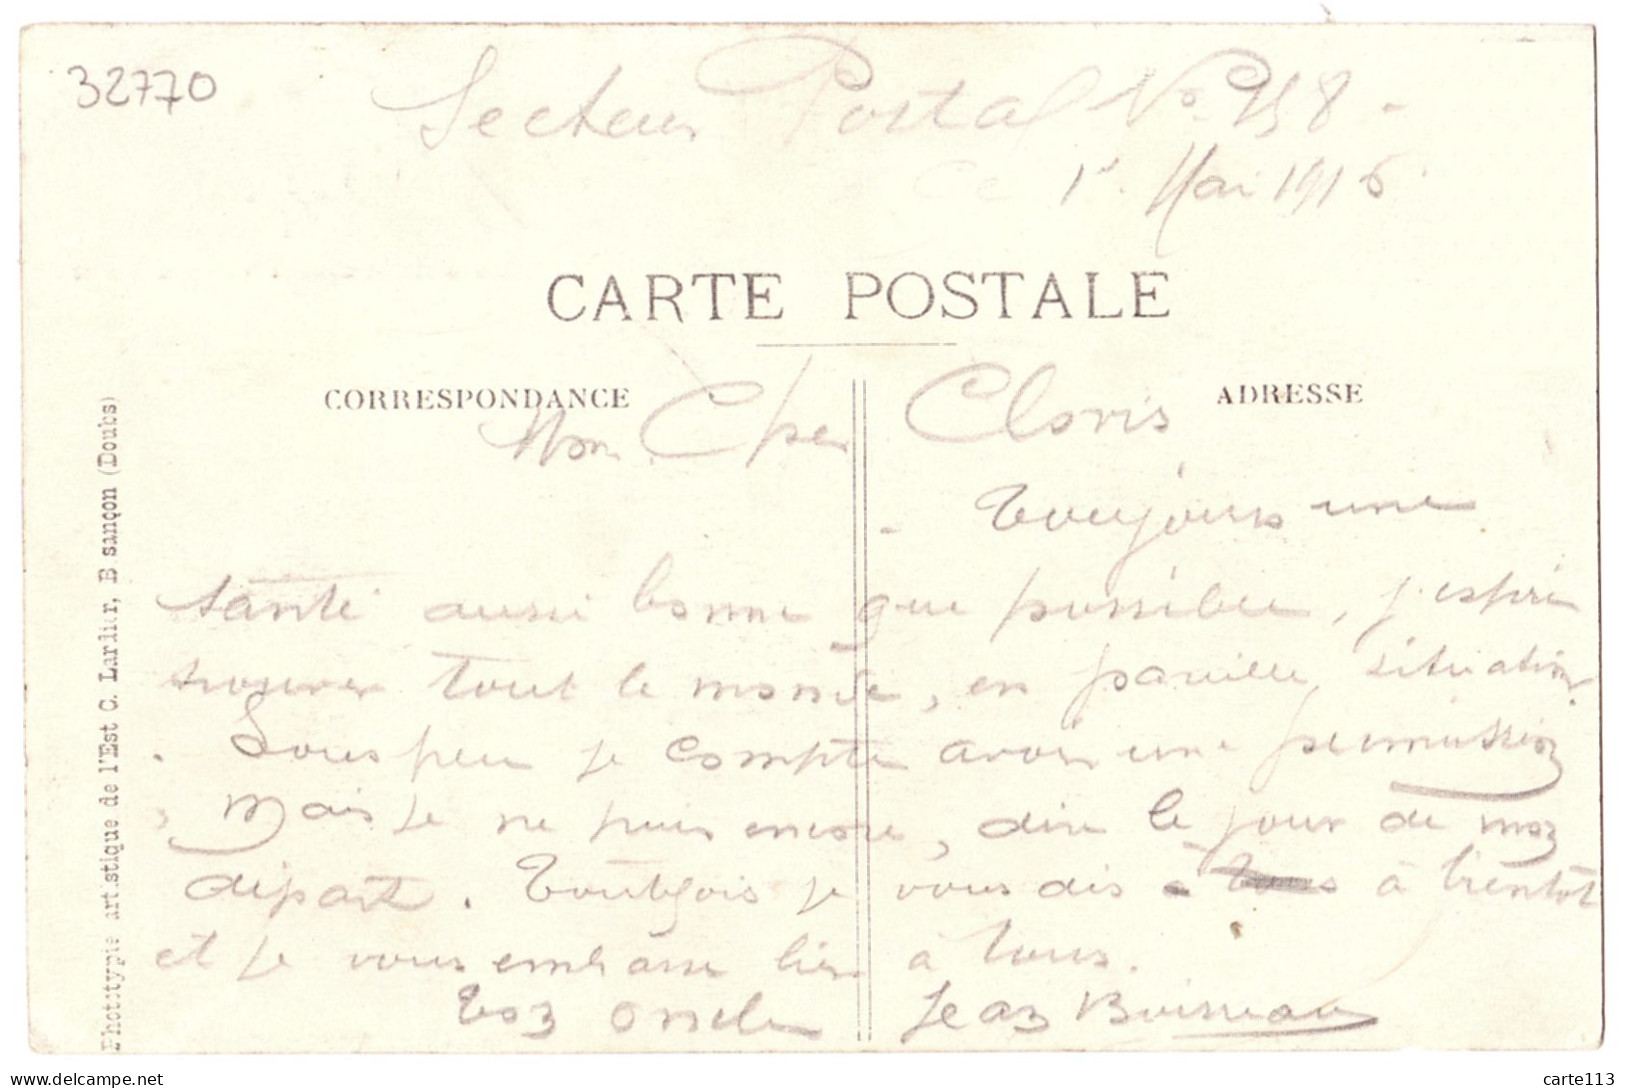 32770
Secteur Postal No 158 -
Ce 1r Mai 1916
CARTE POSTALE
CORRESPONDANCE
ADRESSE
Mon Cher Clovis
Toujours une
santé aussi bonne que possible, j'espère
trouver tout le monde, en pareille situation
. Sous peu je compte avoir une permission
, mais je ne puis encore, dire le jour de mon
départ. Toutefois je vous dis à à bientôt
et je vous embrasse bien à tous.
Ton oncle Jean Boisseau
Phototypie artistique de l'Est C. Lardier, B sançon (Doubs)
delcampe.net
carte113